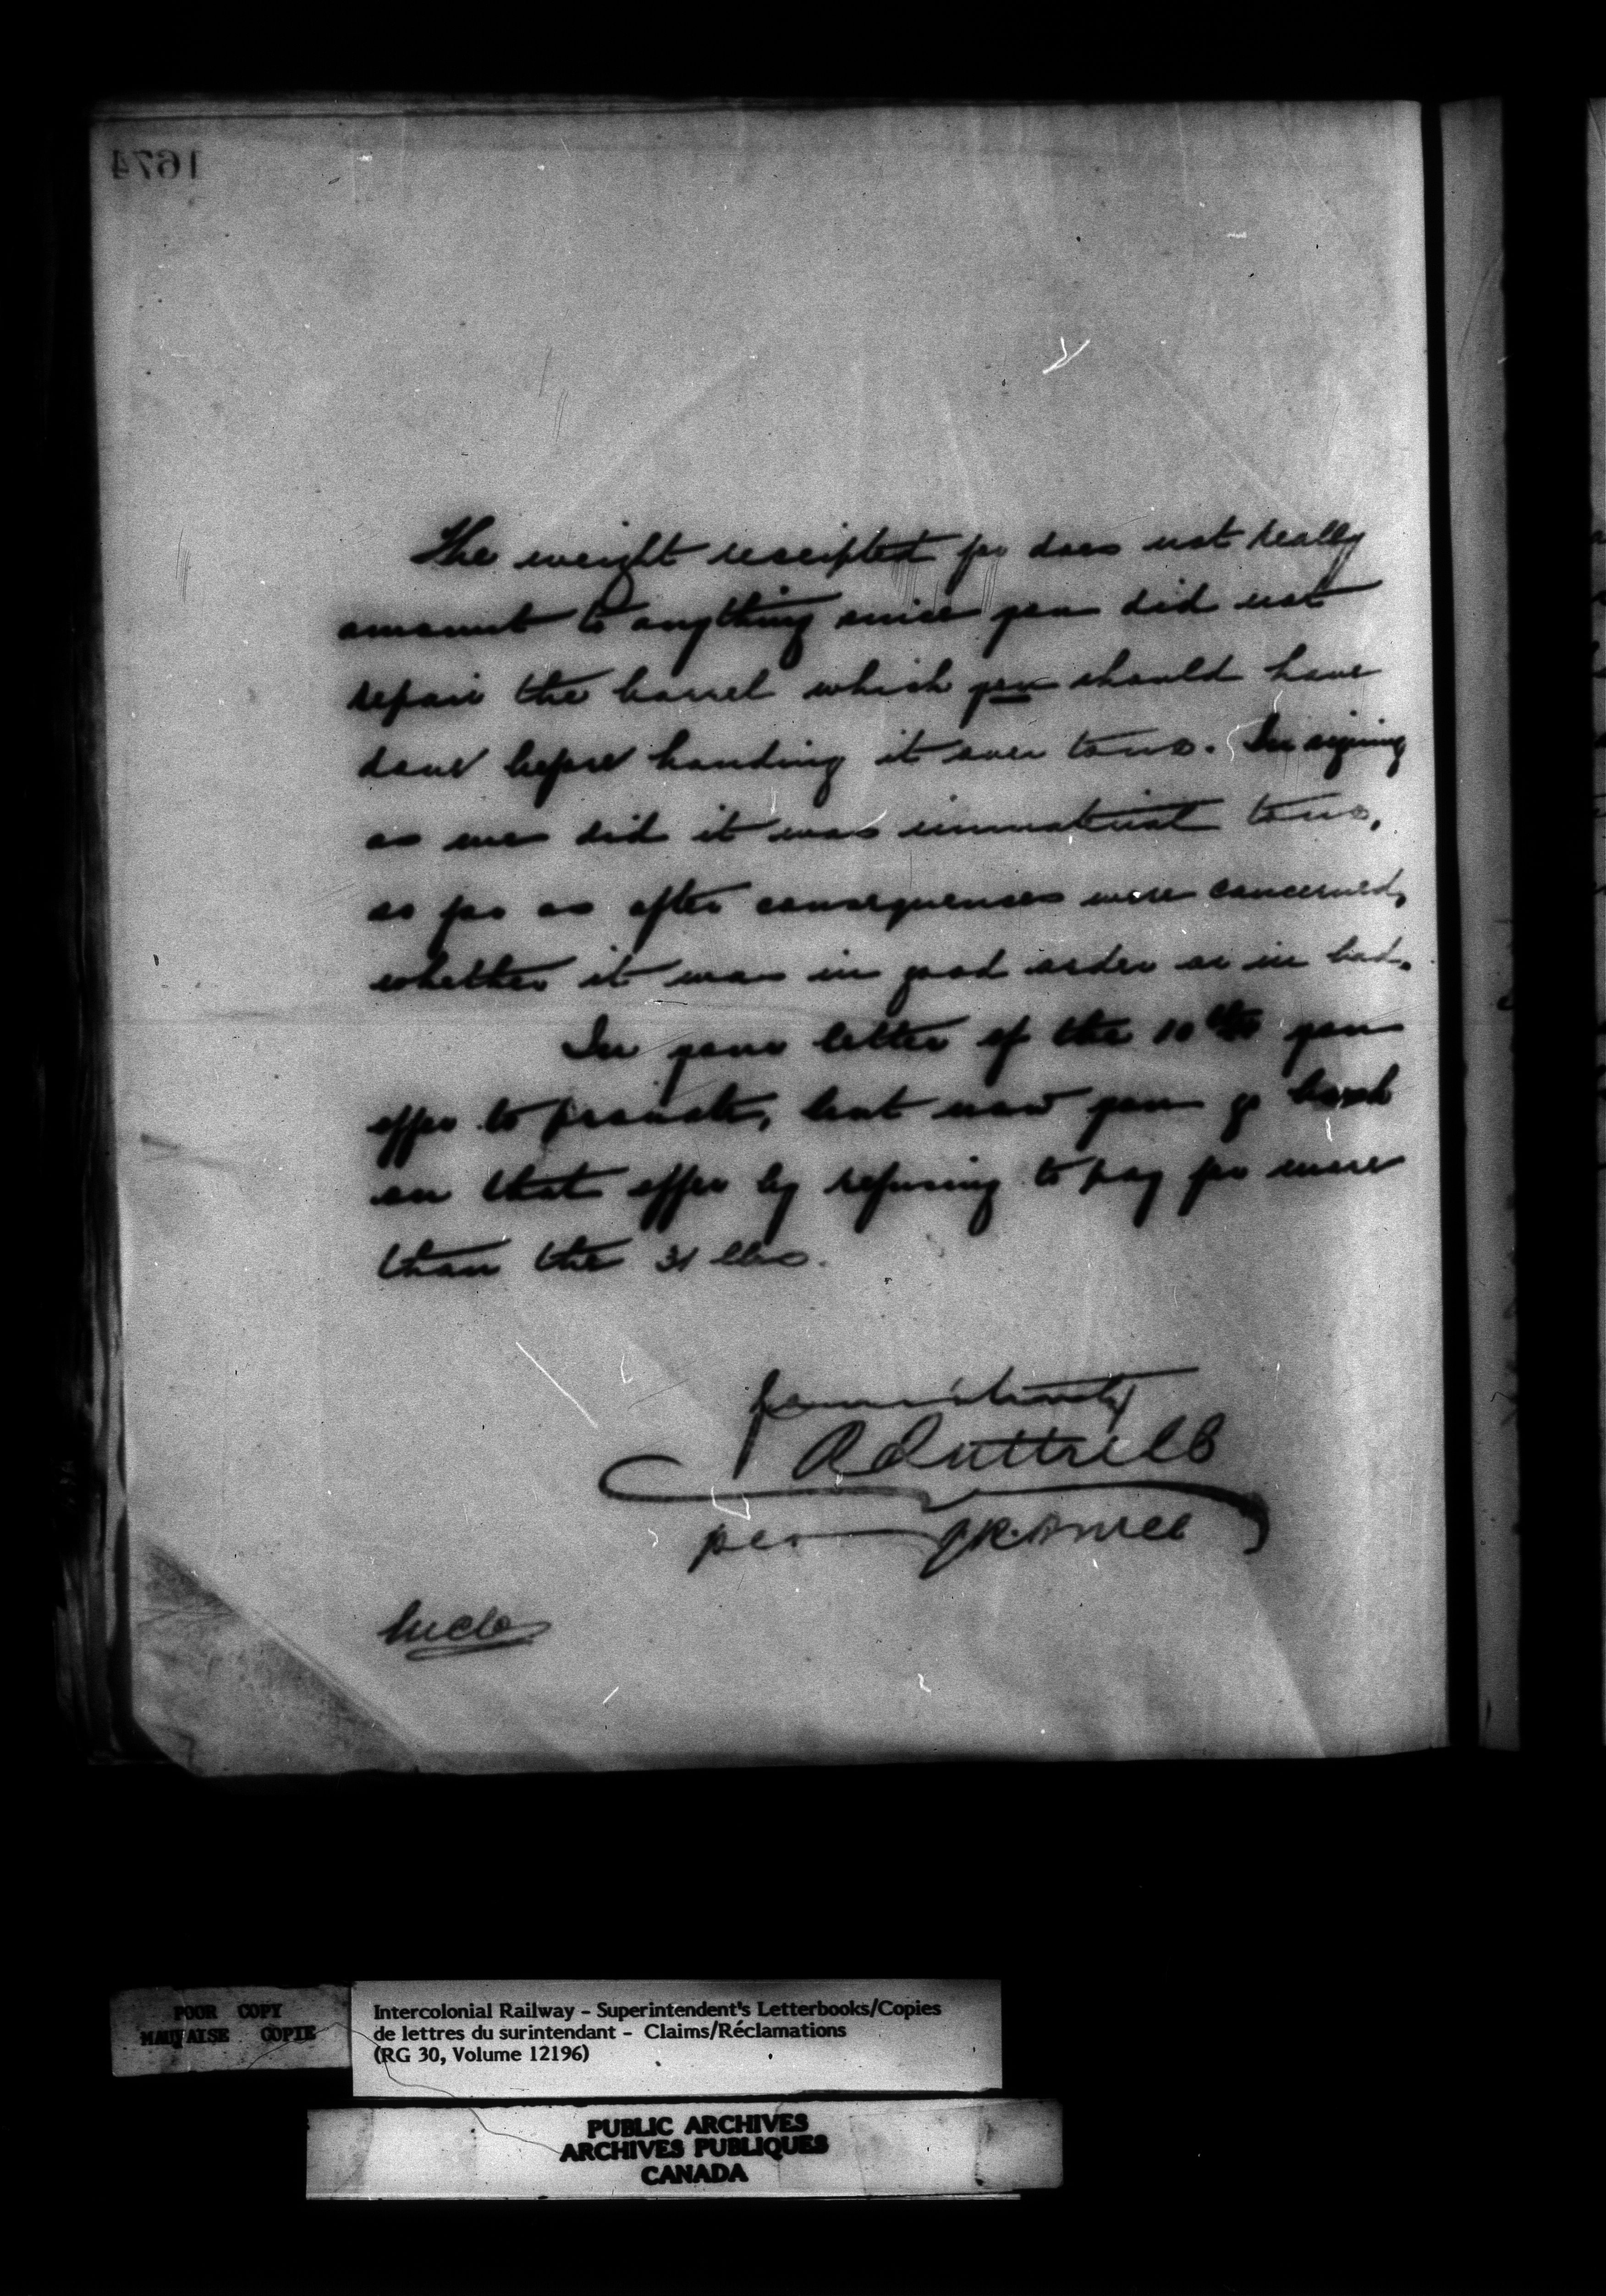 1674
The weight receipted for does not really
amount to anything since you did not
repair the barrel which you should have
done before handing it over to us. In signing
as we did it was immaterial to us,
as far as after consequences were concerned,
whether it was in good order or in bad.
In your letter of the 10th you
offer to prorate, but now you go back
on that offer by refusing to pay for more
than the 31 lbs.
Yours truly
A Luttrell
per
Incls
POOR COPY
MAUVAISE COPIE
Intercolonial Railway - Superintendent's Letterbooks/Copies
de lettres du surintendant - Claims/Réclamations
(RG 30, Volume 12196)
PUBLIC ARCHIVES
ARCHIVES PUBLIQUES
CANADA